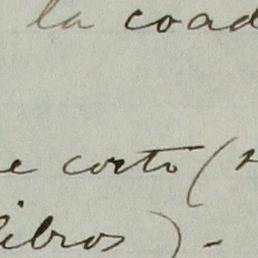 la coad
e corto (
libros) -